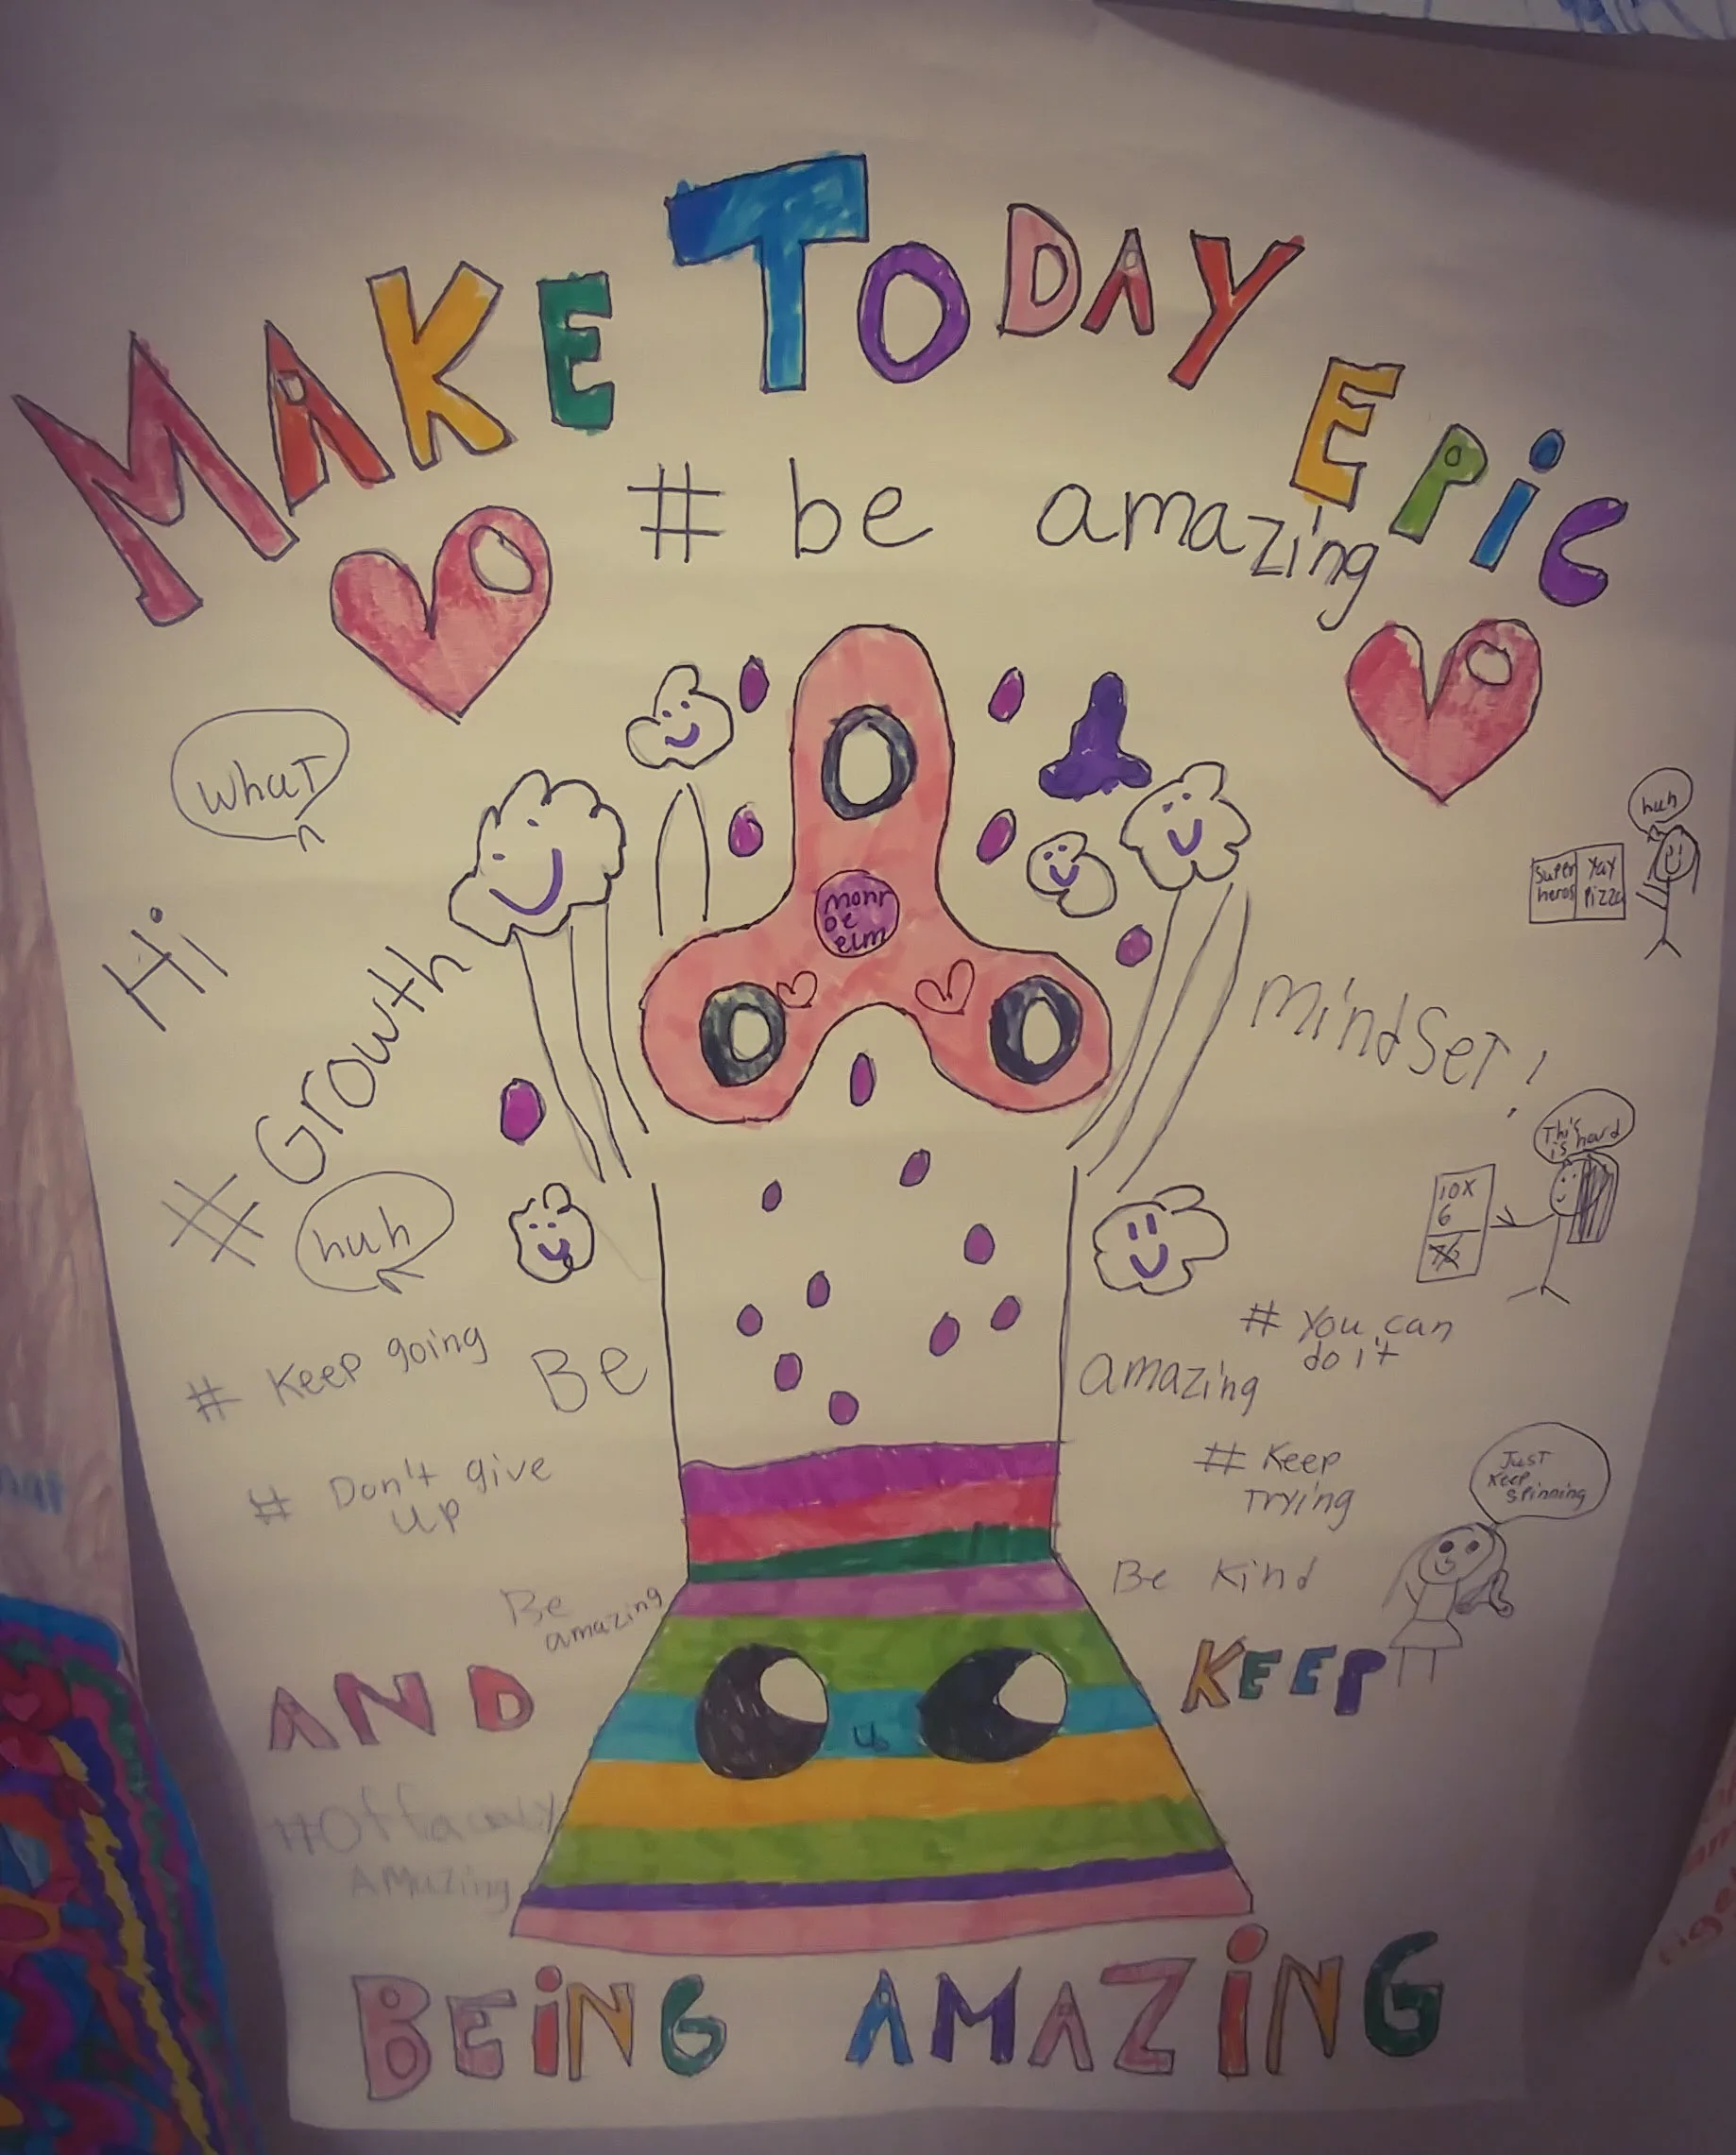 MAKE TODAY EPiC
# be amazing
what
huh
Super Yay
heros Pizza
Hi
monr
oe
elm
# Growth mindset!
This
is hard
10x
6
huh
# Keep going
# You can
do it
Be amazing
# Don't give
up
# Keep
Trying
Just
Keep
Spinning
Be
amazing
Be Kind
AND KEEP
#Offacaly
AMazing
BEiNG AMAZiNG